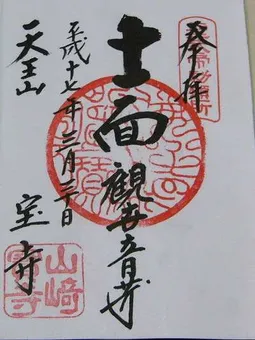 奉拝
十一面観世音菩薩
平成十七年三月二十日
天王山
宝寺
山崎
寳寺